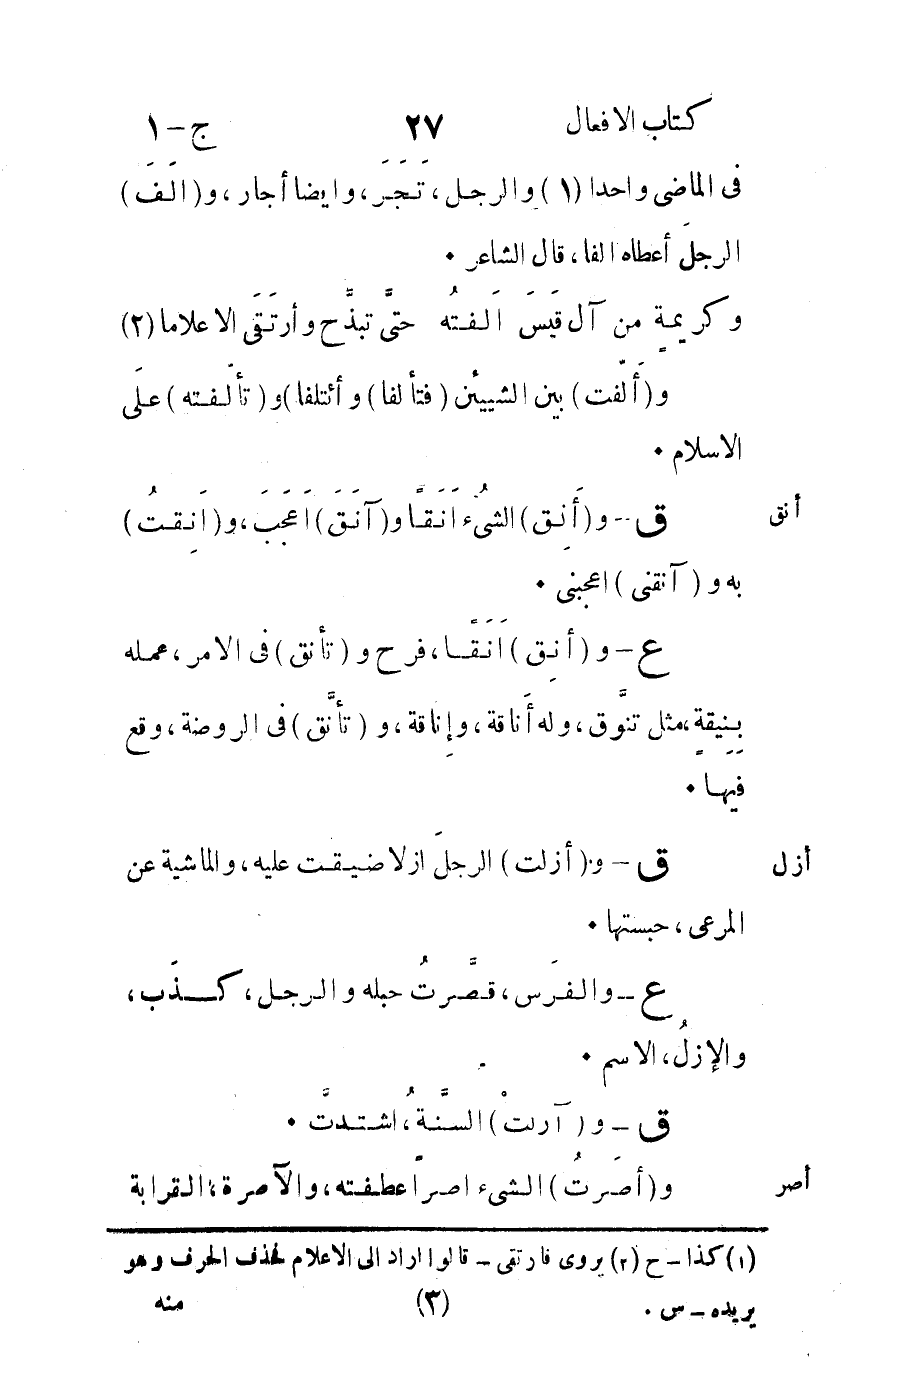 كتاب الافعال ٢٧ ج-١
فى الماضى واحدا (١) والرجل، تَجَرَ، وايضا أجار، و(الَفَ)
الرجلَ أعطاه الفا، قال الشاعر •
وكريمةٍ من آل قَيسَ الَفتُه حتَّى تبذَّح وأرتَقَى الاعلاما (٢)
و(ألّفت) بين الشيئين (فتألفا) وأئتلفا) و(تألّفته) على
الاسلام •
أنق
ق -- و(أَنِق) الشىُء انَقَاً و(آنَقَ) اعَجَبَ، و(انِقتُ)
به و(آنقنى) اعجبنى •
ع - و(أنِق) انَقًا، فرح و(تأنق) فى الامر، عمله
بِنِيقةٍ، مثل تنوَّق، وله أناقة، وإناقة، و(تأنَّق) فى الروضة، وقع
فيها •
أزل
ق - و(أزلت) الرجلَ ازلا ضيقت عليه، والماشية عن
المرعى، حبستها •
ع - والفَرس، قصَّرتُ حبله والرجل، كذَب،
والإزلُ، الاسم •
ق - و(آزلتْ) السنَّةُ، اشتدتَّ •
أصر
و(أصَرتُ) الشىء اصراً عطفته، والآصرة، القرابة
(١) كذا - ح (٢) يروى فارتقى - قالوا اراد الى الاعلام فحذف الحرف وهو
يريده - س • (٣) منه